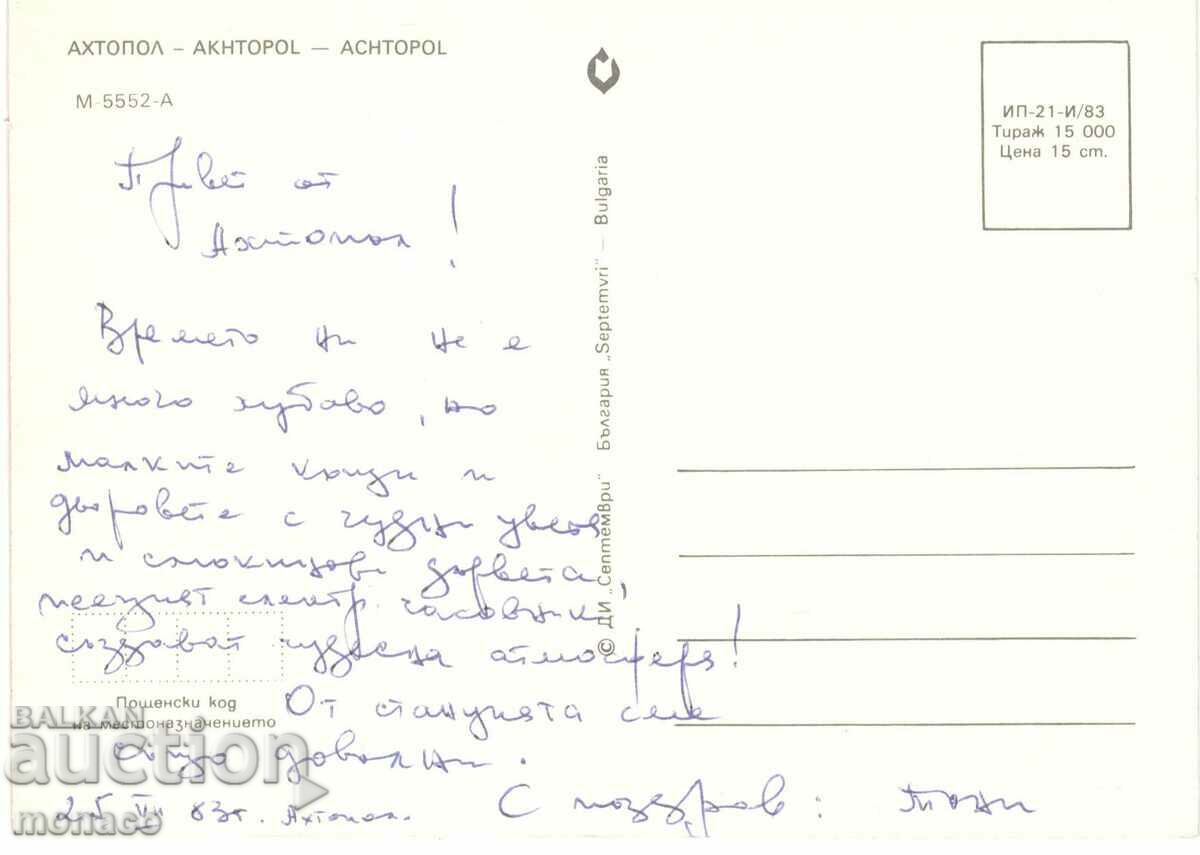 АХТОПОЛ – AKHTOPOL — ACHTOPOL
М-5552-А
ИП-21-И/83
Тираж 15 000
Цена 15 ст.
© ДИ „Септември“ България „Septemvri“ — Bulgaria
Привет от
Ахтопол!
Времето ни не е
много хубаво, но
малките къщи и
дворовете с чудни цветя
и смокинови дървета,
електр. часовник
създават чудесна атмосфера!
От станцията сме
също доволни.
С поздрав: Тони
25 VII 83г. Ахтопол.
Пощенски код
на местоназначението
BALKAN
auction
monaco